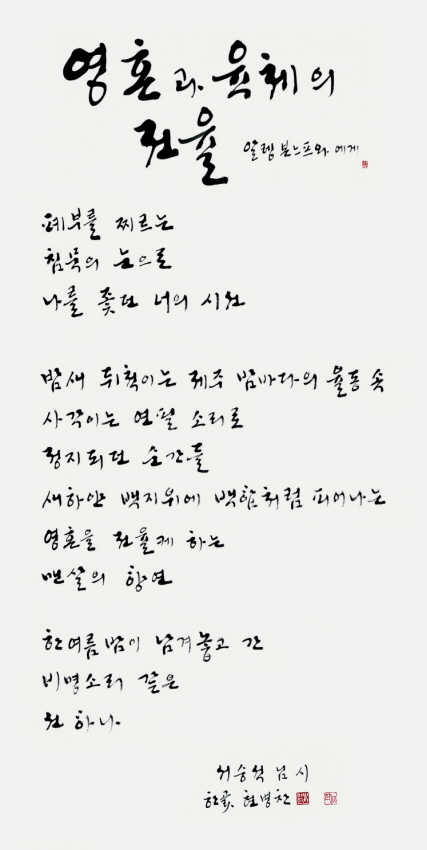 영혼과 육체의
전율
알렘 본느프와 에게
폐부를 찌르는
침묵의 눈으로
나를 쫓던 너의 시선
밤새 뒤척이는 제주 밤바다의 율동 속
사각이는 연필 소리로
정지되던 순간들
새하얀 백지위에 백합처럼 피어나는
영혼을 전율케 하는
맨살의 향연
한여름밤이 남겨놓고 간
비명소리 같은
선 하나.
서승석 님 시
한곬 현병찬